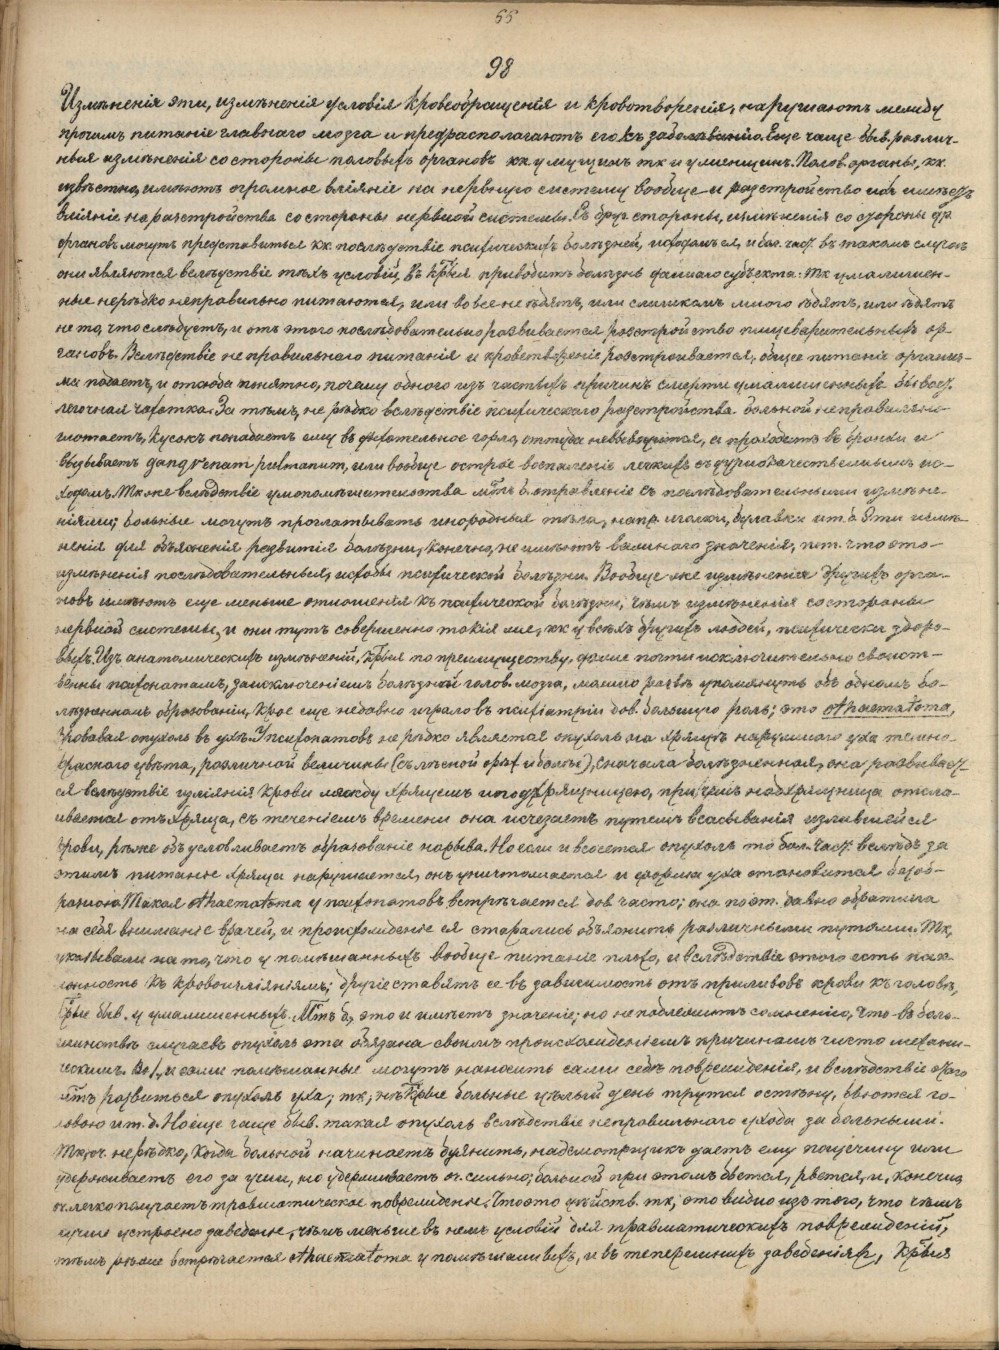 55
98
Измѣненія эти, измѣненія условія кровеобращенія и кровотворенія, нарушаютъ между
прочимъ питаніе главнаго мозга и предрасполагаютъ его къ заболѣванію. Еще чаще быв. различ-
ныя измѣненія со стороны половыхъ органовъ кк у мущинъ тк и у женщинъ. Полов. органы, кк
извѣстно, имѣютъ огромное вліяніе на нервную систему вообще и разстройство ихъ имѣетъ
вліяніе на разстройства со стороны нервной системы. Съ друг. стороны, измѣненія со стороны др.
органовъ могутъ представиться кк послѣдствіе психическихъ болѣзней, исходомъ ея, и бол. част. въ такомъ случаѣ
они являются вслѣдствіе тѣхъ условій, въ крыя приводитъ болѣзнь даннаго субъекта: тк умалишен-
ные нерѣдко неправильно питаются, или вовсе не ѣдятъ, или слишкомъ много ѣдятъ, или ѣдятъ
не то, что слѣдуетъ, и отъ этого послѣдовательно развивается разстройство пищеварительныхъ ор-
гановъ. Вслѣдствіе неправильнаго питанія и кроветвореніе разстроивается, общее питаніе организ-
ма падаетъ, и отсюда понятно, почему одного изъ частыхъ причинъ смерти умалишенныхъ бывает.
легочная чахотка. За тѣмъ, не рѣдко вслѣдствіе психическаго разстройства больной неправильно
глотаетъ, кусокъ попадаетъ ему въ дыхательное горло, оттуда не выводится, а проходитъ въ бронхи и
вызываетъ gangrenam pulmonum, или вообще острое воспаленіе легкихъ съ дурнокачественнымъ ис-
ходомъ. Тк же вслѣдствіе умопомѣшательства мтъ б. отравленіе съ послѣдовательными измѣне-
ніями; больные могутъ проглатывать инородныя тѣла, напр. иголки, булавки и т. д. Эти измѣ-
ненія для объясненія развитія болѣзни, конечно, не имѣютъ важнаго значенія, пт. что это
измѣненія послѣдовательныя, исходы психической болѣзни. Вообще же измѣненія другихъ орга-
новъ имѣютъ еще меньше отношенія къ психической болѣзни, чѣмъ измѣненія со стороны
нервной системы, и они тутъ совершенно такія же, кк у всѣхъ другихъ людей, психически здоро-
выхъ. Изъ анатомическихъ измѣненій, крыя по преимуществу, даже почти исключительно свойст-
венны психопатамъ, за исключеніемъ болѣзней голов. мозга, можно развѣ упомянуть объ одномъ бо-
лѣзненномъ образованіи, крое еще недавно играло въ психіатріи дов. большую роль; это othaematoma,
кровавая опухоль въ ухѣ. У психопатовъ не рѣдко является опухоль на хрящѣ наружнаго уха темно-
краснаго цвѣта, различной величины (съ лѣсной орѣх и болѣе), сначала болѣзненная, она развивает-
ся вслѣдствіе изліянія крови между хрящемъ и подхрящницею, при чемъ надхрящница отсла-
ивается отъ хряща, съ теченіемъ времени она исчезаетъ путемъ всасыванія излившейся
крови, рѣже обусловливаетъ образованіе нарыва. Но если и всосется опухоль то бол. част. вслѣдъ за
этимъ питаніе хряща нарушается, онъ уничтожается и форма уха становится безоб-
разною. Такая othaematoma у психопатовъ встрѣчается дов. часто; она поэт. давно обратила
на себя вниманіе врачей, и происхожденіе ея старались объяснить различными путями. Тк,
указывали на то, что у помѣшанныхъ вообще питаніе плохо, и вслѣдствіе этого есть нак-
лонность къ кровоизліяніямъ; другіе ставятъ ее въ зависимость отъ приливовъ крови къ головѣ,
крые быв. у умалишенныхъ. Мтъ б, это и имѣетъ значеніе; но не подлежитъ сомнѣнію, что въ боль-
шинствѣ случаевъ опухоль эта обязана своимъ происхожденіемъ причинамъ чисто механи-
ческимъ. Во I, и сами помѣшанные могутъ наносить сами себѣ поврежденія, и вслѣдствіе этого
мтъ развиться опухоль уха; тк, нѣкрые больные цѣлый день трутся о стѣну, бьются го-
ловою и т. д. Но еще чаще быв. такая опухоль вслѣдствіе неправильнаго ухода за больными.
Тк, оч. нерѣдко, когда больной начинаетъ буянить, надсмотрщикъ даетъ ему пощечину или
удерживаетъ его за уши, но удерживаетъ оч. сильно; больной при этомъ бьется, рвется, и, конечно,
оч. легко получаетъ травматическое поврежденіе. Что это дѣйств. тк, это видно изъ того, что чѣмъ
лучше устроено заведеніе, чѣмъ меньше въ немъ условій для травматическихъ поврежденій,
тѣмъ рѣже встрѣчается othaematoma у помѣшанныхъ, и въ теперешнихъ заведеніяхъ, крыя